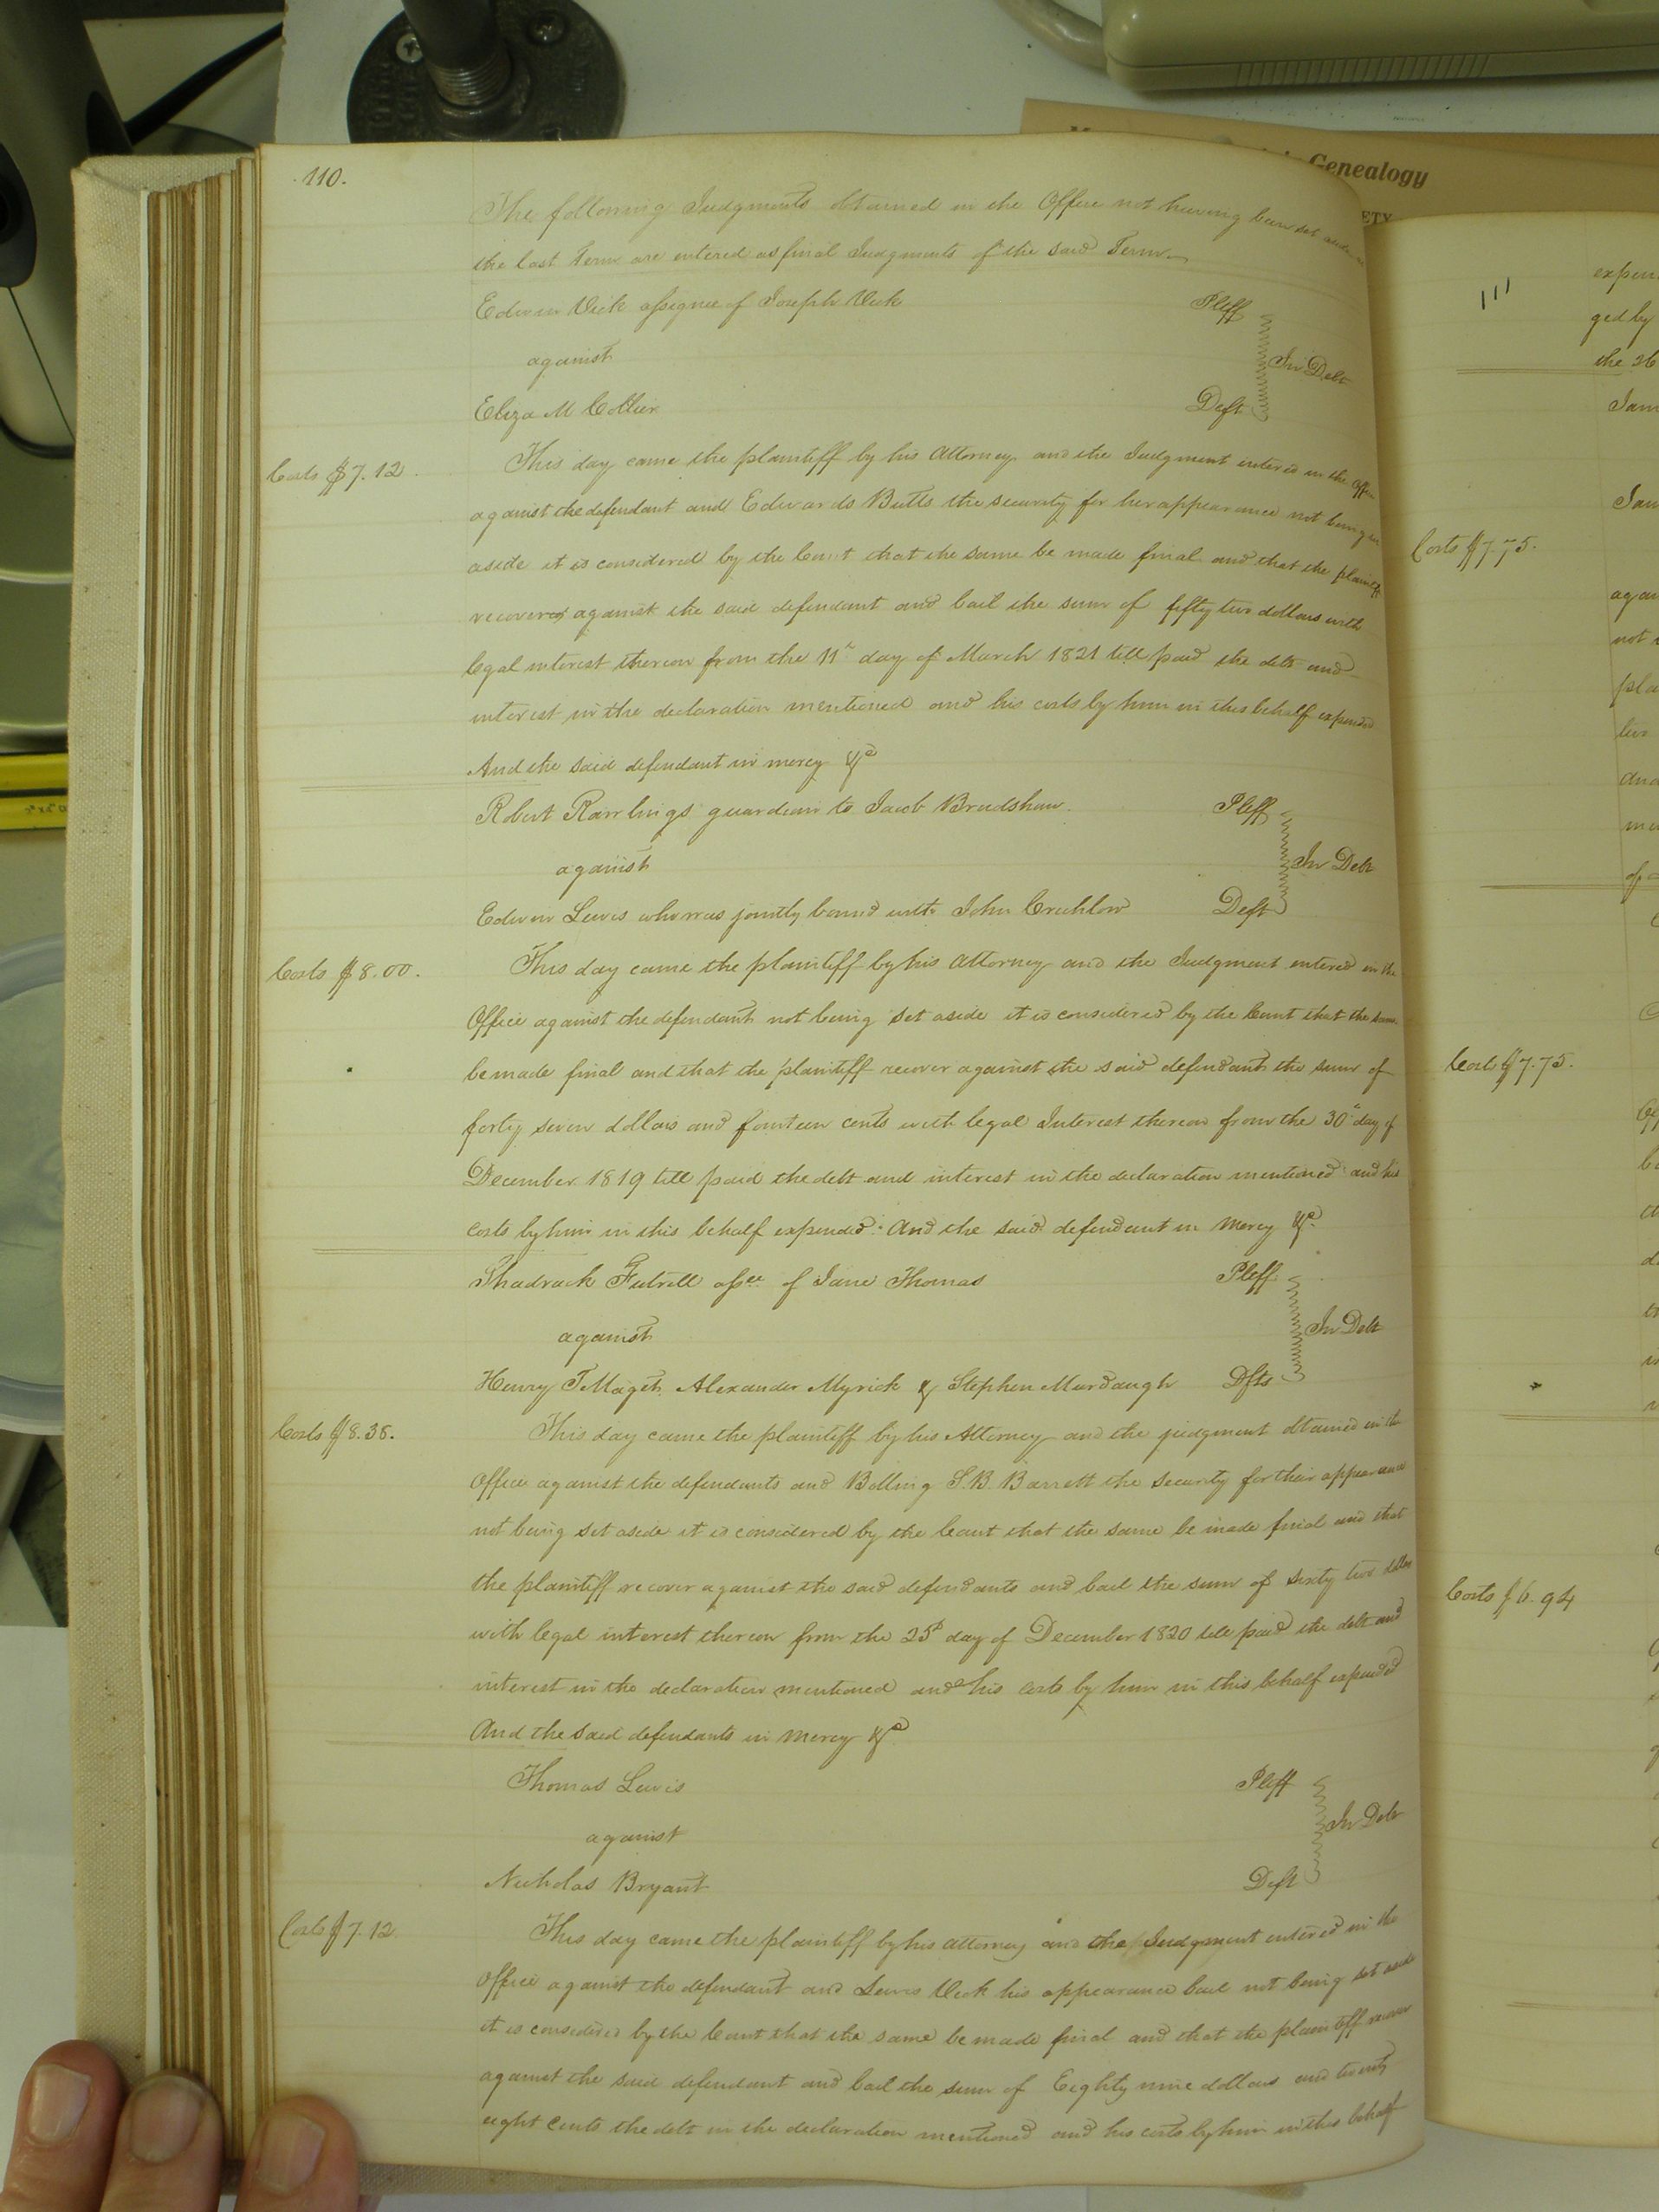 110.
The following Judgments obtained in the Office not having been set aside at
the last Term are entered as final Judgments of the said Term.
Edwin Vick assignee of Joseph Vick Pltff
against In Debt
Eliza M Collier Deft
Costs $7.12.
This day came the plaintiff by his Attorney and the Judgment entered in the Office
against the defendant and Edwards Butts the security for her appearance not being set
aside it is considered by the Court that the same be made final and that the plaintiff
recover against the said defendant and bail the sum of fifty two dollars with
legal interest thereon from the 11th day of March 1821 till paid the debt and
interest in the declaration mentioned and his costs by him in this behalf expended
And the said defendant in mercy &c
Robert Rawlings guardian to Jacob Bradshaw. Pltff
against In Debt
Edwin Lewis who was jointly bound with John Crichlow Deft
Costs $8.00.
This day came the plaintiff by his Attorney and the Judgment entered in the
Office against the defendant not being set aside it is considered by the Court that the same
be made final and that the plaintiff recover against the said defendant the sum of
forty seven dollars and fourteen cents with legal Interest thereon from the 30th day of
December 1819 till paid the debt and interest in the declaration mentioned and his
costs by him in this behalf expended. And the said defendant in mercy &c.
Shadrack Futrell assee. of Jane Thomas Pltff
against In Debt
Henry T Maget, Alexander Myrick & Stephen Murdaugh Dfts
Costs $8.38.
This day came the plaintiff by his Attorney and the judgment obtained in the
Office against the defendants and Bolling S.B. Barrett the security for their appearance
not being set aside it is considered by the Court that the same be made final and that
the plaintiff recover against the said defendants and bail the sum of sixty two dollars
with legal interest thereon from the 25th day of December 1820 till paid the debt and
interest in the declaration mentioned and his costs by him in this behalf expended
And the said defendants in mercy &c
Thomas Lewis Pltff
against In Debt
Nicholas Bryant Deft
Costs $7.12
This day came the plaintiff by his attorney and the Judgment entered in the
Office against the defendant and Lewis Vick his appearance bail not being set aside
it is considered by the Court that the same be made final and that the plaintiff recover
against the said defendant and bail the sum of Eighty nine dollars and twenty
eight cents the debt in the declaration mentioned and his costs by him in this behalf
Genealogy
111
ged by
the 26
Costs $7.75.
not
Costs $7.75.
Costs $6.94